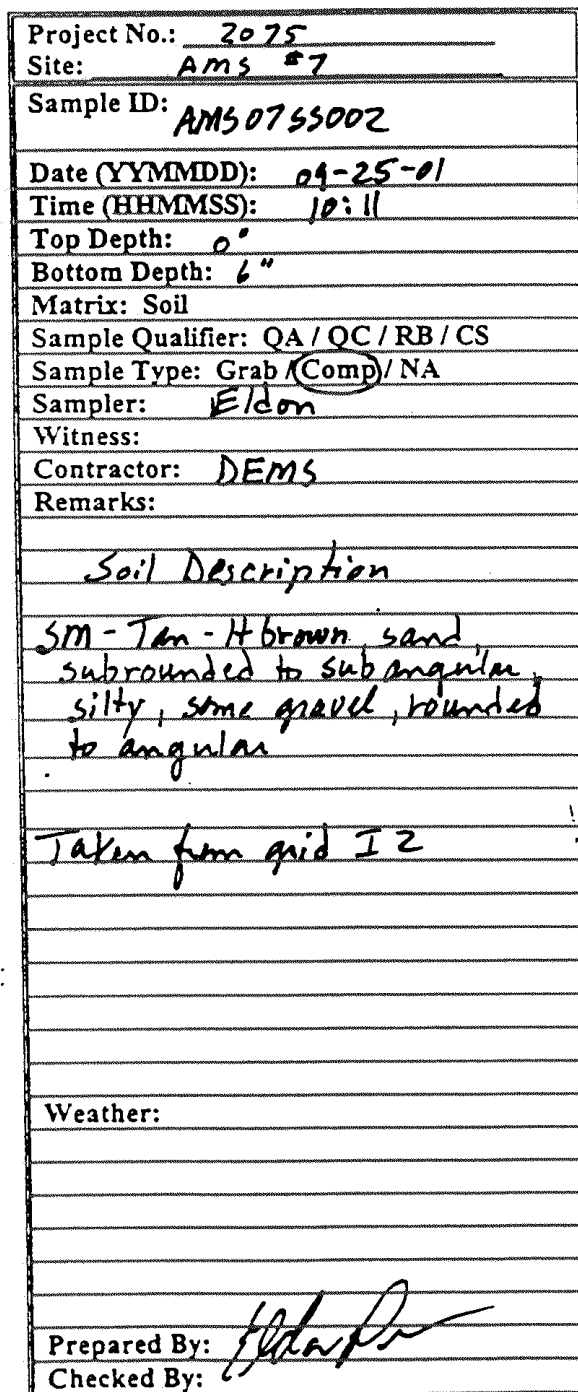 Project No.: 2075
Site: AMS #7
Sample ID: AMS07SS002
Date (YYMMDD): 09-25-01
Time (HHMMSS): 10:11
Top Depth: 0"
Bottom Depth: 6"
Matrix: Soil
Sample Qualifier: QA / QC / RB / CS
Sample Type: Grab / Comp / NA
Sampler: Eldon
Witness:
Contractor: DEMS
Remarks:
Soil Description
SM - Tan - lt brown sand,
subrounded to subangular,
silty, some gravel, rounded
to angular
Taken from grid I2
Weather:
Prepared By:
Checked By: